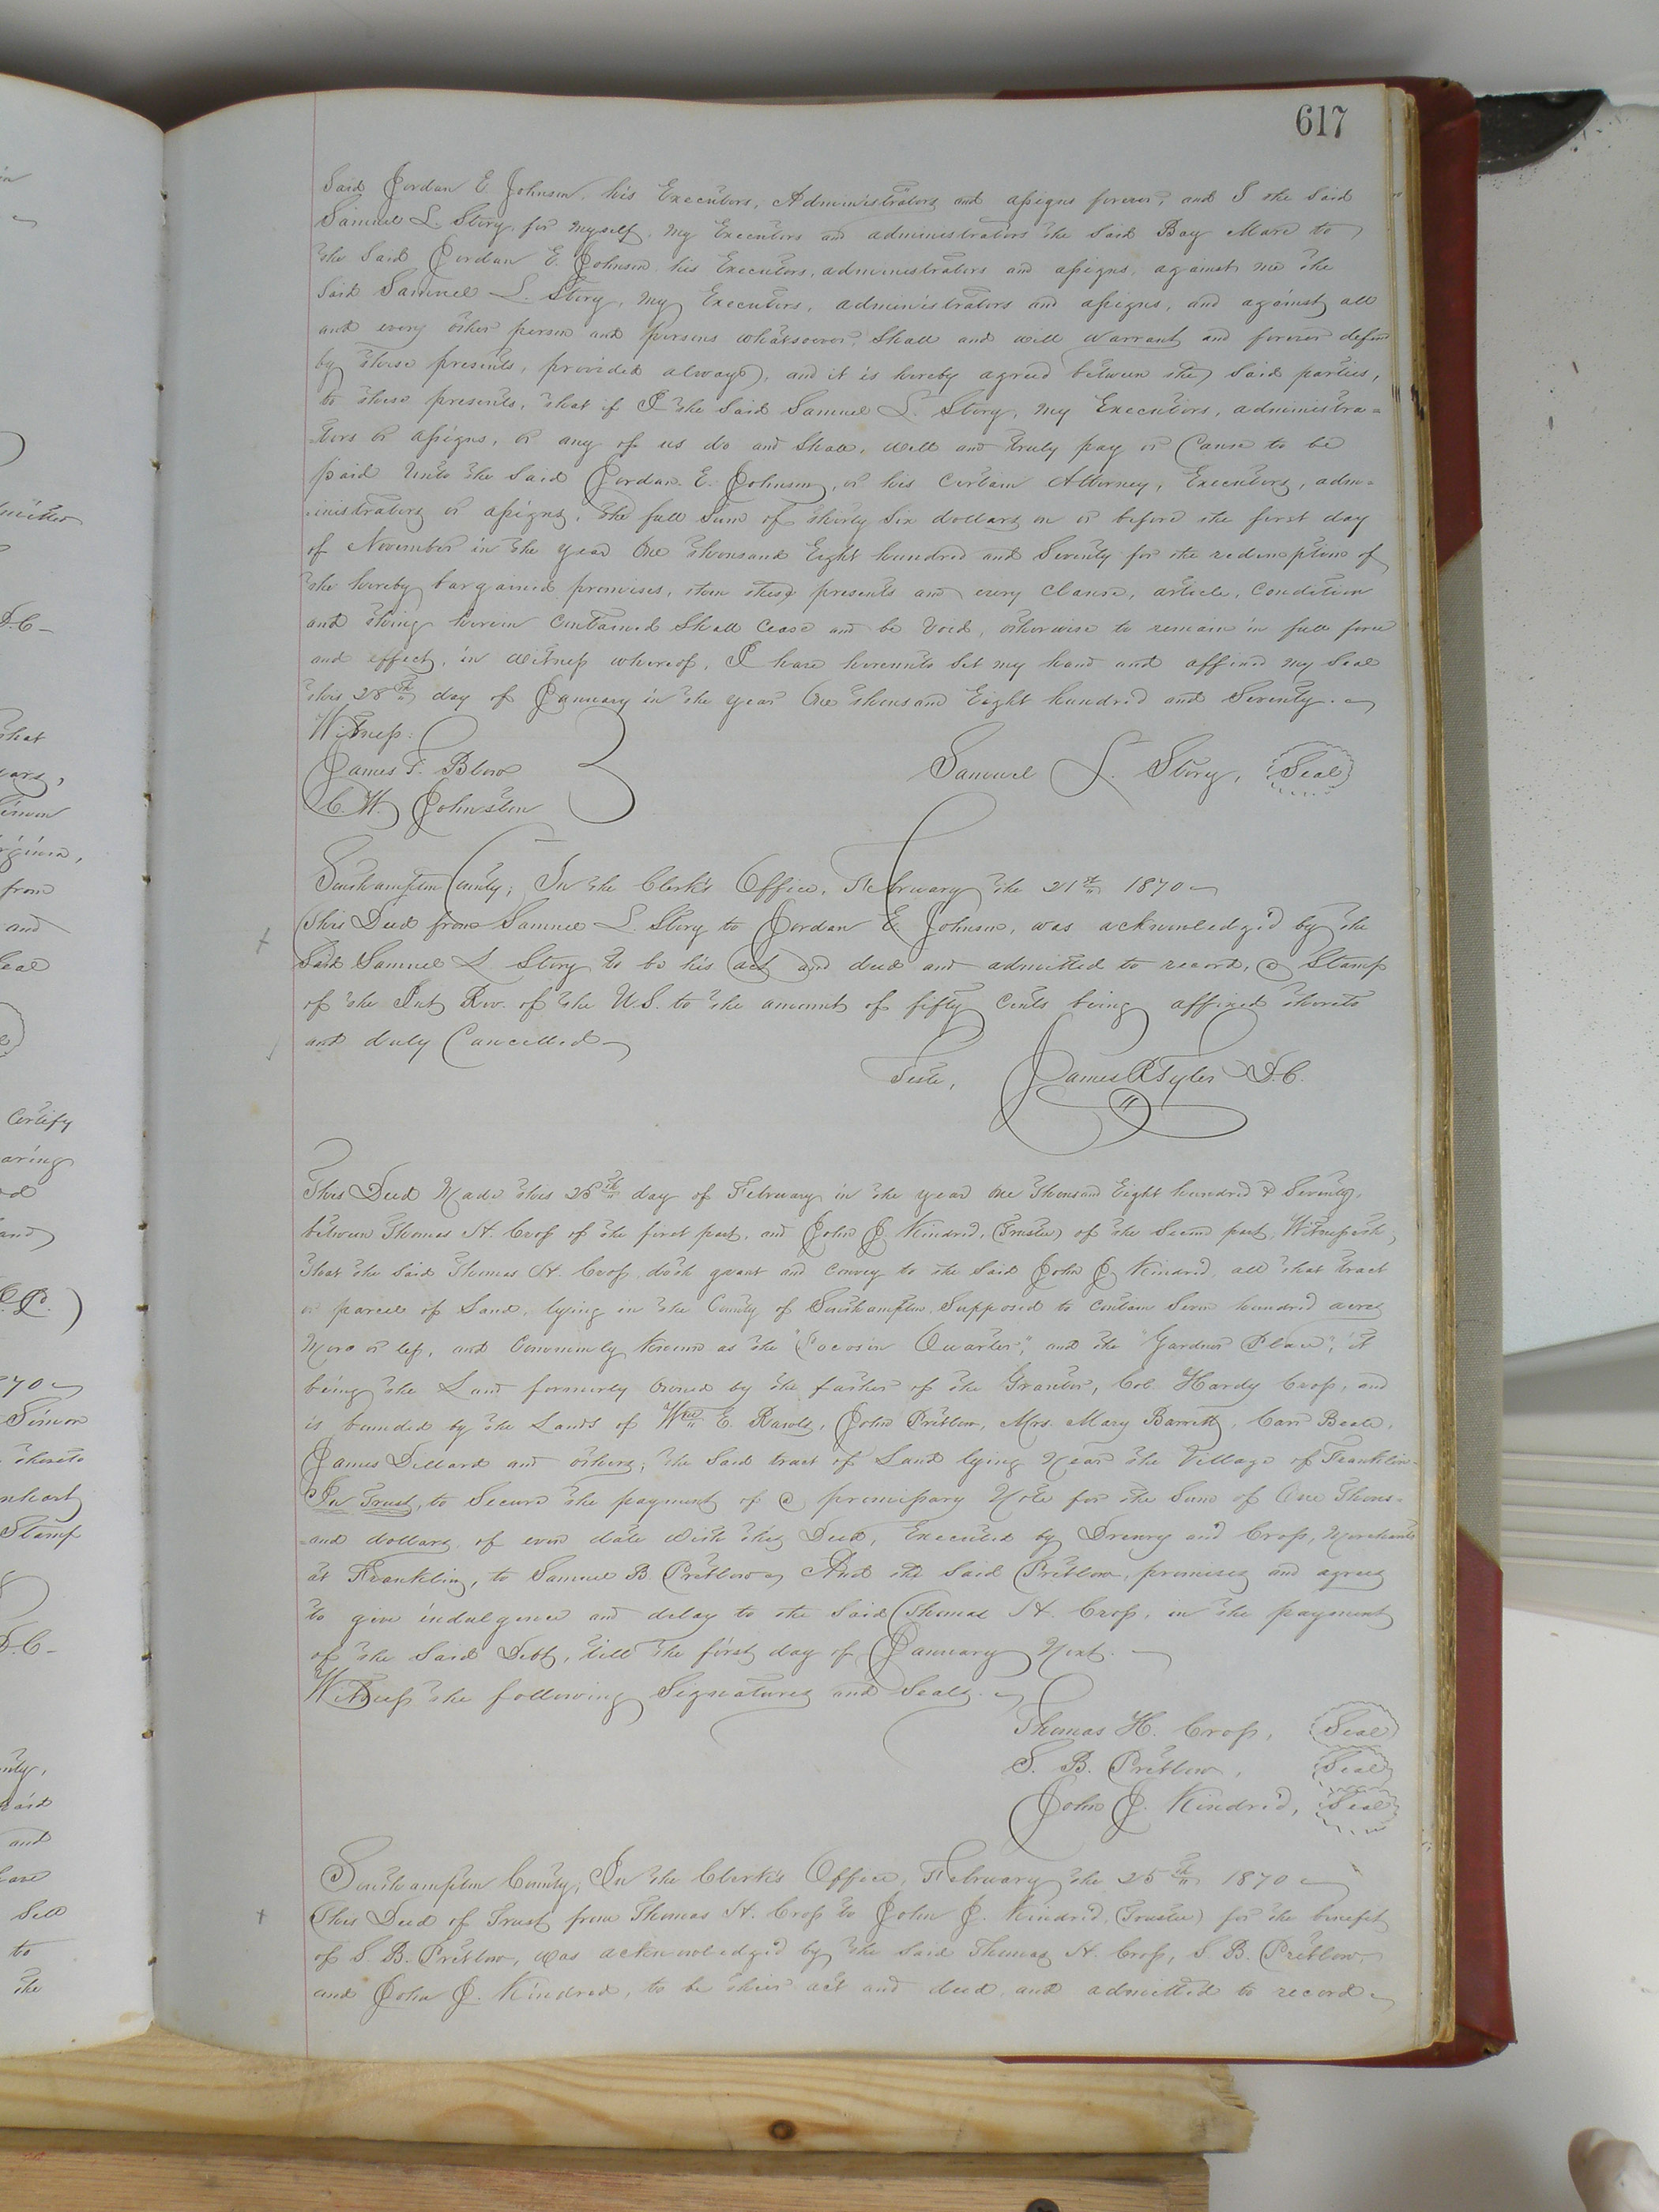 617
Said Jordan E. Johnson, his Executors, Administrators and assigns forever, and I the Said
Samuel L. Story, for myself, my Executors and administrators the Said Bay Mare to
the Said Jordan E. Johnson his Executors, administrators and assigns, against me the
Said Samuel L. Story, my Executors, administrators and assigns, and against all
and every other person and persons whatsoever, Shall and will Warrant and forever defend
by these presents, provided always, and it is hereby agreed between the Said parties,
to these presents, that if I the Said Samuel L. Story, my Executors, administra=
=tors or assigns, or any of us do and Shall, well and truly pay or Cause to be
paid Unto the Said Jordan E. Johnson, or his Certain Attorney, Executors, adm=
=inistrators or assigns, the full Sum of thirty Six dollars on or before the first day
of November in the year One thousand Eight hundred and Seventy for the redemption of
the hereby bargained premises, then these presents and every Clause, article, Condition
and thing herein Contained Shall Cease and be Void, otherwise to remain in full force
and effect, in Witness whereof, I have hereunto Set my hand and affixed my Seal
this 28th day of January in the year One thousand Eight hundred and Seventy.
Witness:
James F. Blow
Samuel L. Story, Seal
C. W. Johnston
Southampton County; In the Clerk's Office, February the 21st 1870
This Deed from Samuel L. Story to Jordan E. Johnson, was acknowledg'd by the
Said Samuel L. Story to be his act and deed and admitted to record, a Stamp
of the Int Rev. of the U.S. to the amount of fifty Cents being affixed thereto
and duly Cancelled
Teste, James R Tyler D.C.
This Deed Made this 25th day of February in the year One Thousand Eight hundred & Seventy,
between Thomas H. Cross of the first part, and John J. Kindred, (Trustee) of the Second part, Witnesseth,
That the Said Thomas H. Cross, doth grant and Convey to the Said John J. Kindred, all that tract
or parcel of Land, lying in the County of Southampton, Supposed to Contain Seven hundred acres
More or less, and Commonly Known as the "Pocosin Quarter", and the "Gardner Place", it
being the Land formerly Owned by the father of the Grantor, Col. Hardy Cross, and
is bounded by the Lands of Wm E. Rawls, John Pretlow, Mrs. Mary Barrett, Carr Beale,
James Dillard and others; the Said tract of Land lying Near the Village of Franklin
In Trust, to Secure the payment of a promissary Note for the Sum of One Thous=
=and dollars, of even date with this Deed, Executed by Drewry and Cross, Merchants
at Franklin, to Samuel B. Pretlow, And the Said Pretlow, promises and agrees
to give indulgence and delay to the Said Thomas H. Cross, in the payment
of the Said Debt, till the first day of January Next.
Witness the following Signatures and Seals.
Thomas H. Cross, Seal
S. B. Pretlow, Seal
John J. Kindred, Seal
Southampton County; In the Clerk's Office, February the 25th 1870
This Deed of Trust from Thomas H. Cross to John J. Kindred, (Trustee) for the benefit
of S. B. Pretlow, was acknowledg'd by the Said Thomas H. Cross, S. B. Pretlow,
and John J. Kindred, to be their act and deed, and admitted to record